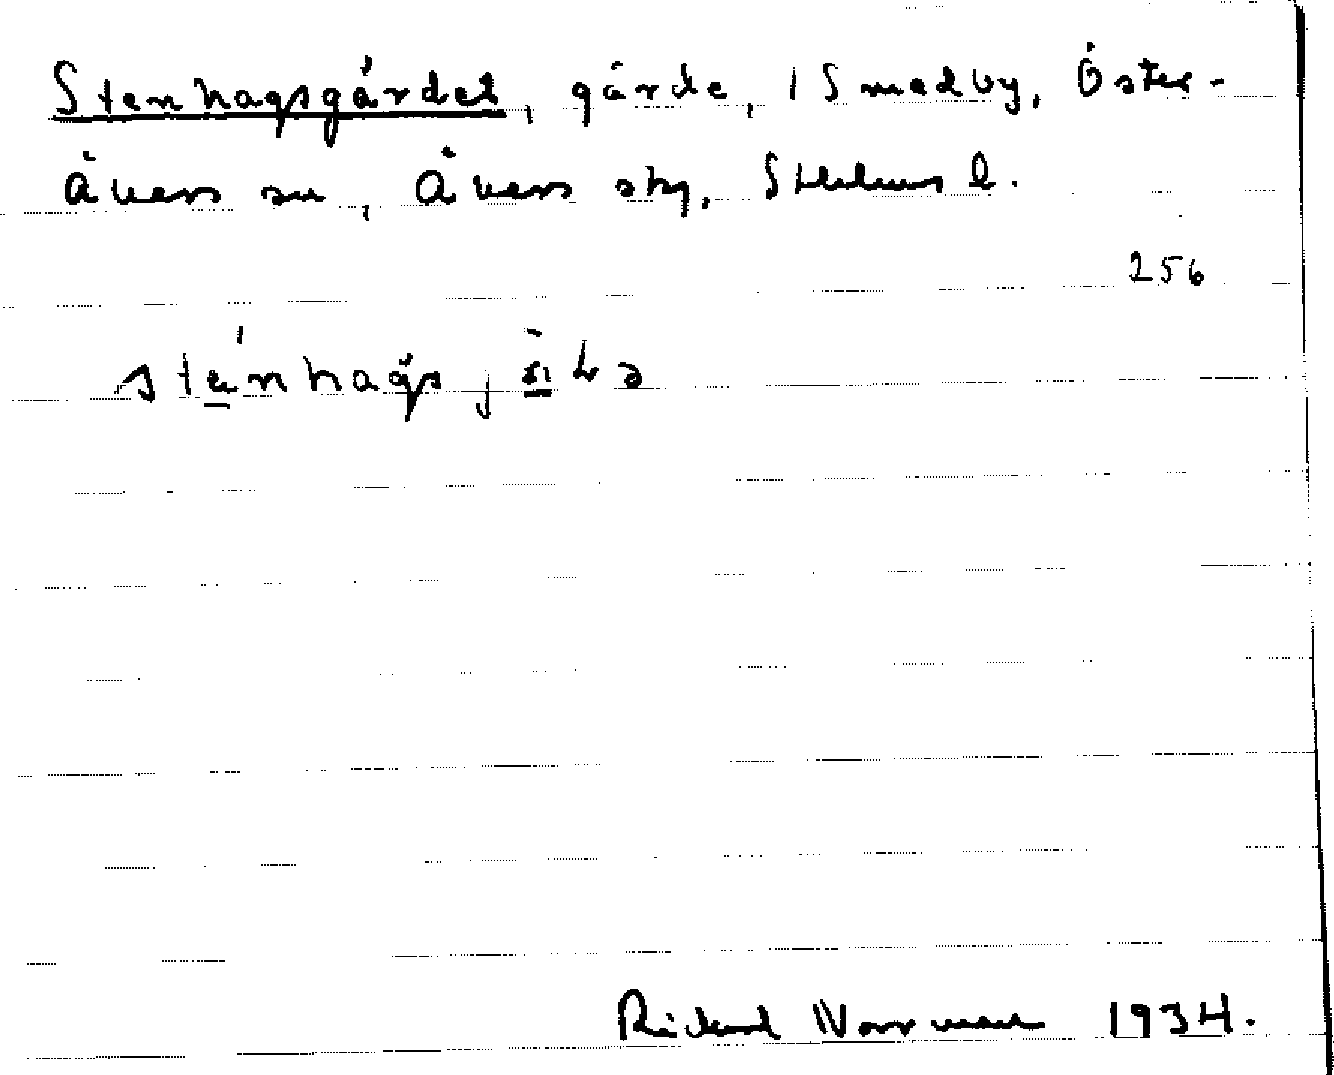 Stenhagsgärdet, gärde, i Smedby, Öster-
åkers sn, Åkers skg, Sthlms l.
256
Rickard Norrman 1934.